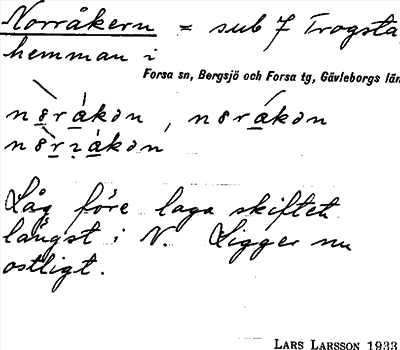 Norråkern = sub 7 Trogsta,
hemman i
Forsa sn, Bergsjö och Forsa tg, Gävleborgs län
Låg före laga skiftet
längst i N. Ligger nu
ostligt.
LARS LARSSON 1933